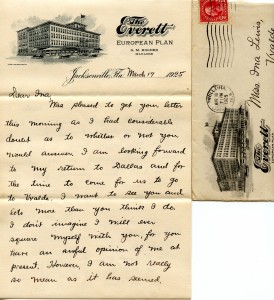 The
Everett
EUROPEAN PLAN
MANAGER
Jacksonville, Fla. March 17 1925
Dear Ina
Was pleased to get your letter
this morning as I had considerable
doubt as to whether or not you
would answer. I am looking forward
to my return to Dallas and for
the time to come for us to go
to Uvalde. I want to see you and
lots more than you think I do.
I don't imagine I will ever
square myself with you, for you
have an awful opinion of me at
present. However, I am not really
so mean as it has seemed.
Miss Ina Lewis,
Uvalde
The
Everett